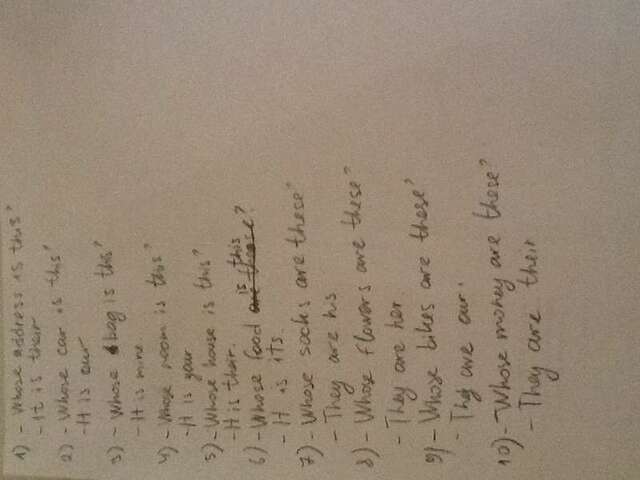 1) - Whose address is this?
- It is their
2) - Whose car is this?
- It is our
3) - Whose bag is this?
- It is mine.
4) - Whose room is this?
- It is your
5) - Whose house is this?
- It is their.
6) - Whose food are these is this?
- It is its.
7) - Whose socks are these?
- They are his
8) - Whose flowers are these?
- They are her.
9) - Whose bikes are these?
- They are our.
10) - Whose money are these?
- They are their